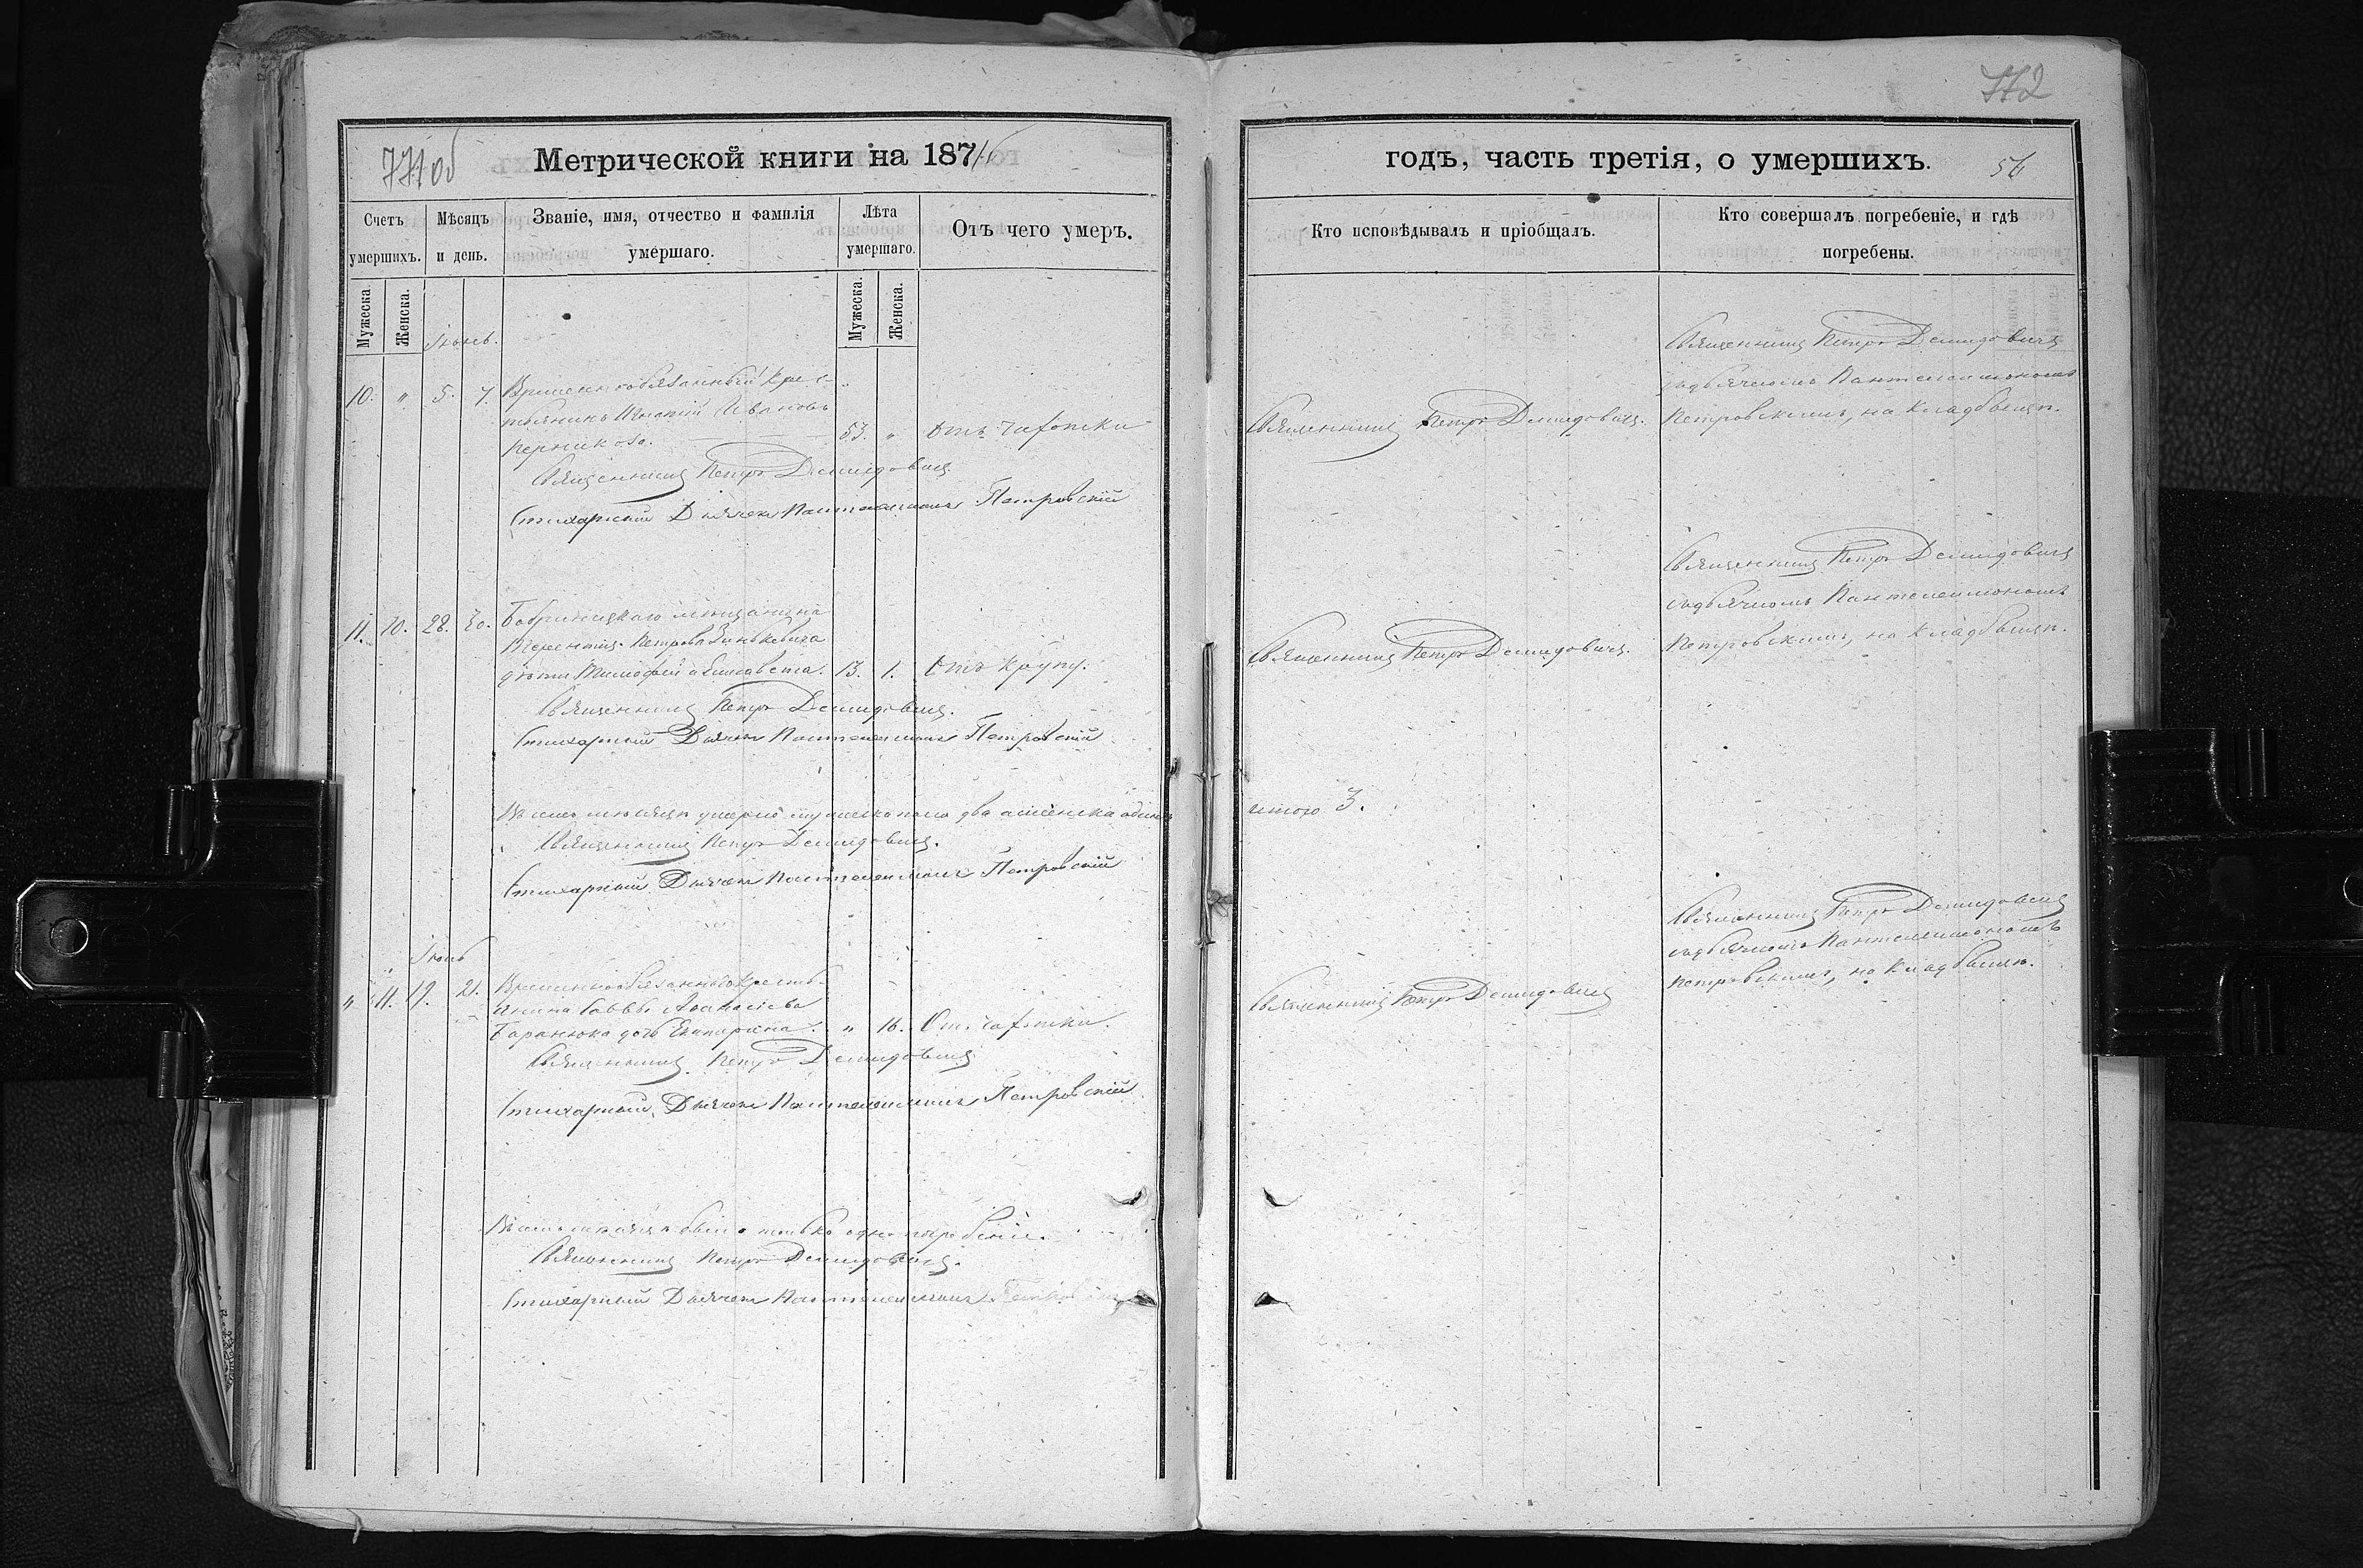 771 об
Метрической книги на 187
Счетъ умершихъ.
Мѣсяцъ и день.
Званіе, имя, отчество и фамилія умершаго.
Лѣта умершаго.
Отъ чего умеръ.
Мужеска.
Женска.
Мужеска.
Женска.
Іюнь.
10. " 5. 7. Временнообязанный крес-
тьянинъ Игнатій Ивановъ
53. " Отъ чахотки
Священникъ Петръ Демидовичъ.
Стихарный Дьячекъ Пантелеимонъ Петровскій
11. 10. 28. 30. Бобринецкаго мѣщанина
Терентія Петрова Зинькевича
дѣти Тимофей и Елисавета. 13. 1. Отъ крупу.
Священникъ Петръ Демидовичъ.
Стихарный Дьячекъ Пантелеимонъ Петровскій
Въ семъ мѣсяцѣ умерло мужеска пола два а женска одинъ
Священникъ Петръ Демидовичъ.
Стихарный Дьячекъ Пантелеимонъ Петровскій
Іюль
" 11. 19. 21. Временнообязаннаго кресть-
янина Саввы Аѳанасіева
дочь Екатерина. " 16. Отъ чахотки.
Священникъ Петръ Демидовичъ
Стихарный Дьячекъ Пантелеимонъ Петровскій
Въ семъ мѣсяцѣ было только одно погребеніе.
Священникъ Петръ Демидовичъ.
Стихарный Дьячекъ Пантелеимонъ Петровскій
772
годъ, часть третія, о умершихъ.
56
Кто исповѣдывалъ и пріобщалъ.
Кто совершалъ погребеніе, и гдѣ погребены.
Священникъ Петръ Демидовичъ
съ дьячкомъ Пантелеимономъ
Священникъ Петръ Демидовичъ.
Петровскимъ, на кладбищѣ.
Священникъ Петръ Демидовичъ
съ дьячкомъ Пантелеимономъ
Священникъ Петръ Демидовичъ.
Петровскимъ, на кладбищѣ.
итого 3.
Священникъ Петръ Демидовичъ
съ дьячкомъ Пантелеимономъ
Священникъ Петръ Демидовичъ
Петровскимъ, на кладбищѣ.